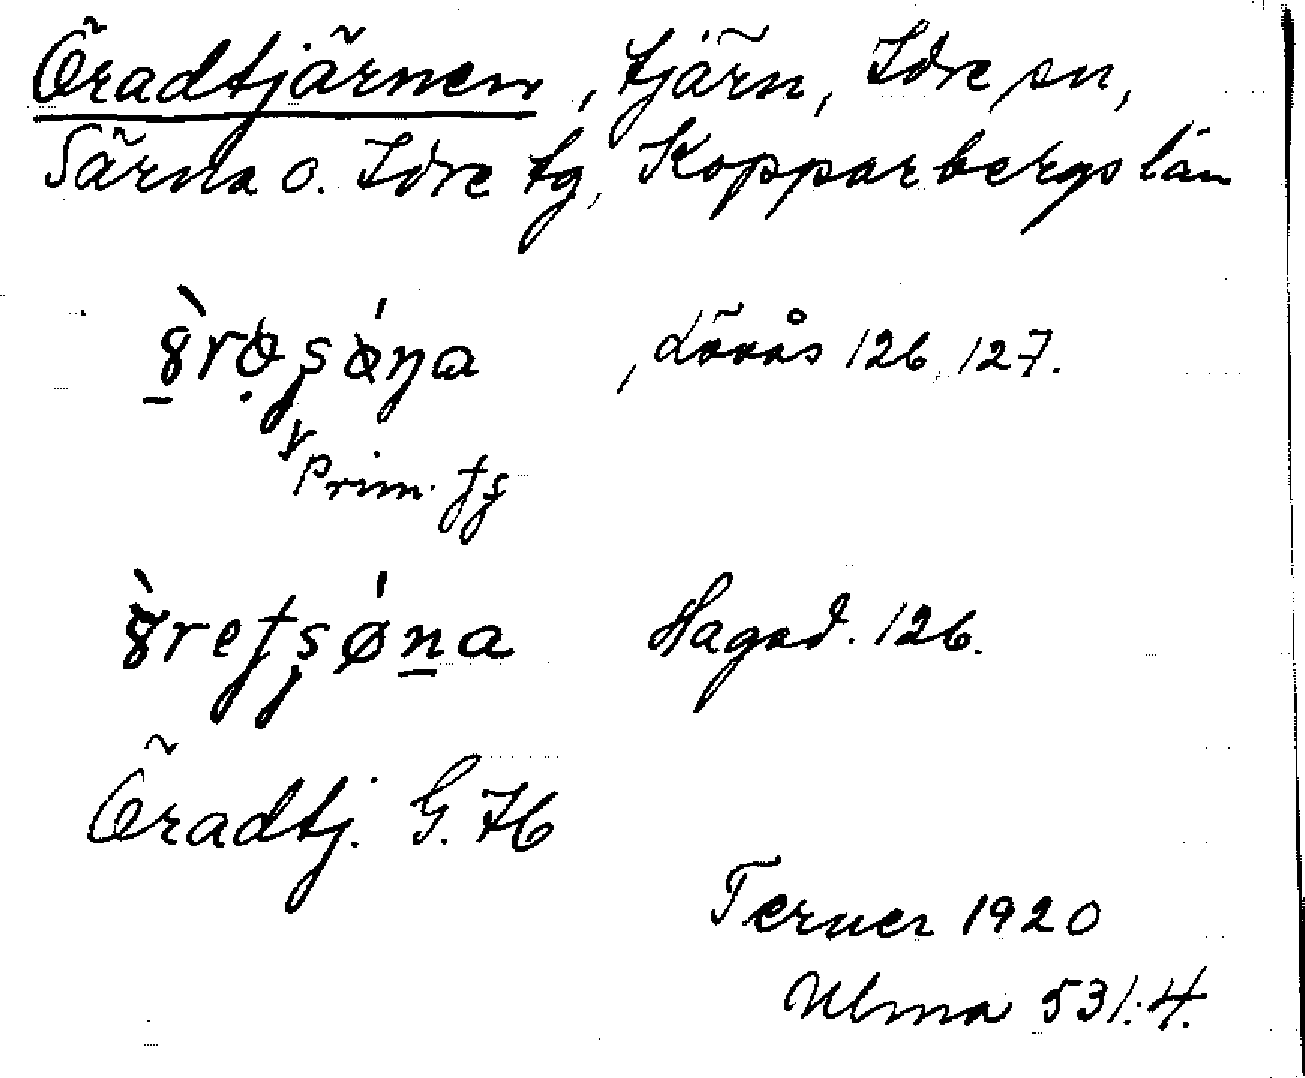 Öradtjärnen, tjärn, Idre sn,
Särna o. Idre tg, Kopparbergs län
Lövås 126, 127.
Prim.
Hagad. 126.
Öradtj. G.
Terner 1920
Ulma 531:4.